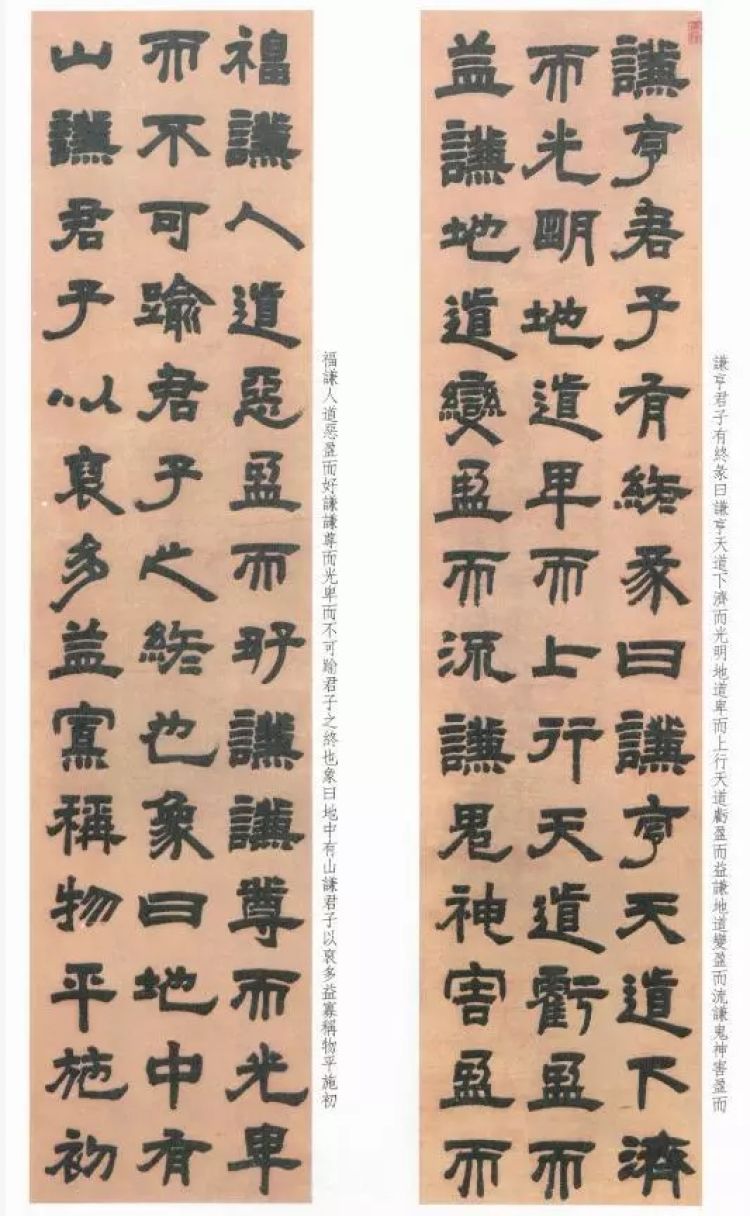 謙亨君子有終彖曰謙亨天道下濟而光明地道卑而上行天道虧盈而益謙地道變盈而流謙鬼神害盈而
謙亨君子有終彖曰謙亨天道下濟
而光明地道卑而上行天道虧盈而
益謙地道變盈而流謙鬼神害盈而
福謙人道惡盈而好謙謙尊而光卑而不可踰君子之終也象曰地中有山謙君子以裒多益寡稱物平施初
福謙人道惡盈而好謙謙尊而光卑
而不可踰君子之終也象曰地中有
山謙君子以裒多益寡稱物平施初